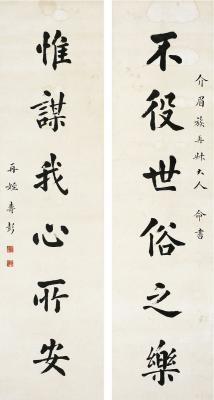 不役世俗之樂
介眉族再姊大人 命書
惟謀我心所安
再姪壽彭